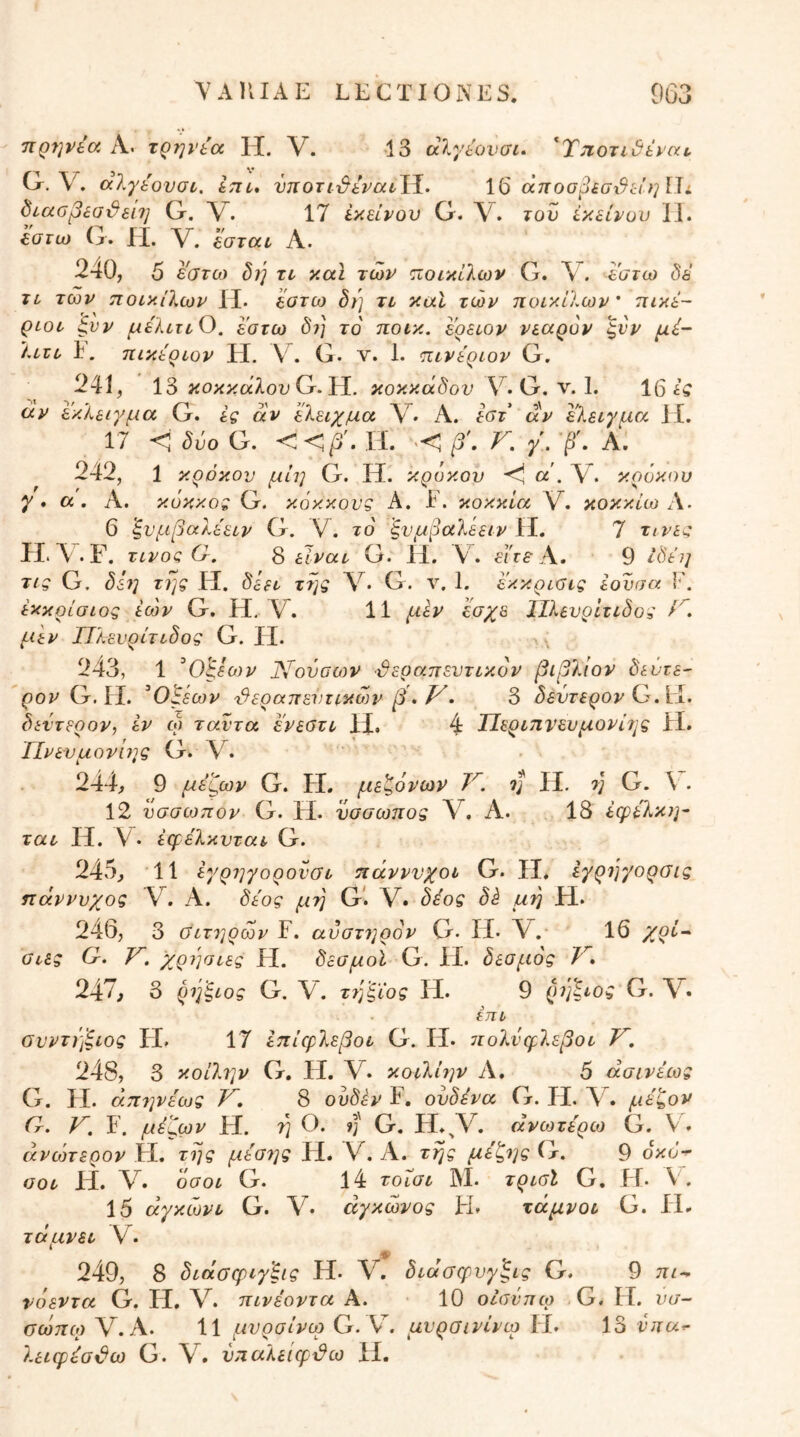 VARIAE LECTIONES. 963
πρηνέα A. τρηνέα H. V. 13 ἀλγέουσι. Ὑποτιθέναι
G. V. ἀλγέουσι. ἐπι. ὑποτιθέναι H. 16 ἀποσβεσθείη H.
διασβεσθείη G. V. 17 ἐκείνου G. V. τοῦ ἐκείνου H.
ἔστω G. H. V. ἔσται A.
240, 5 ἔστω δή τι καὶ τῶν ποικίλων G. V. ἔστω δέ
τι τῶν ποικίλων H. ἔστω δή τι καὶ τῶν ποικίλων· πικέ-
ριοι ξὺν μέλιτι O. ἔστω δὴ τὸ ποικ. ἔρειον νεαρὸν ξὺν μέ-
λιτι F. πικέριον H. V. G. v. 1. πινέριον G.
241, 13 κοκκάλου G. H. κοκκάδου V. G. v. 1. 16 ἐς
ἂν ἔκλειγμα G. ἐς ἂν ἔλειχμα V. A. ἐστ᾽ ἂν ἔλειγμα H.
17 < δύο G. <<β´. H. < β´. V. γ´. β´. A.
242, 1 κρόκου μίη G. H. κρόκου < α´. V. κρόκου
γ´. α´. A. κόκκος G. κόκκους A. F. κοκκία V. κοκκίω A.
6 ξυμβαλέειν G. V. τὸ ξυμβαλέειν H. 7 τινες
H. V. F. τινος G. 8 εἶναι G. H. V. εἴτε A. 9 ἰδέη
τις G. δέη τῆς H. δέει τῆς V. G. v. 1. ἔκκρισις ἐοῦσα F.
ἐκκρίσιος ἐὼν G. H. V. 11 μὲν ἔσχε Πλευρίτιδος V.
μὲν Πλευρίτιδος G. H.
243, 1 Ὀξέων Νούσων θεραπευτικὸν βιβλίον δεύτε-
ρον G. H. Ὀξέων θεραπευτικῶν β´. V. 3 δεύτερον G. H.
δεύτερον, ἐν ᾧ ταῦτα ἔνεστι H. 4 Περιπνευμονίης H.
Πνευμονίης G. V.
244, 9 μέζων G. H. μεζόνων V. ἢ H. ἡ G. V.
12 ὕσσωπον G. H. ὕσσωπος V. A. 18 ἐφέλκη-
ται H. V. ἐφέλκυται G.
245, 11 ἐγρηγοροῦσι πάννυχοι G. H. ἐγρήγορσις
πάννυχος V. A. δέος μὴ G. V. δέος δὲ μὴ H.
246, 3 σιτηρῶν F. αὐστηρὸν G. H. V. 16 χρί-
σιες G. V. χρήσιες H. δεσμοὶ G. H. δεσμὸς V.
247, 3 ρήξιος G. V. τήξϊος H. 9 ρήξιος G. V.
ἐπι
συντήξιος H. 17 ἐπίφλεβοι G. H. πολύφλεβοι V.
248, 3 κοίλην G. H. V. κοιλίην A. 5 ἀσινέως
G. H. ἀπηνέως V. 8 οὐδὲν F. οὐδένα G. H. V. μέζον
G. V. F. μέζων H. ἡ O. ἢ G. H. V. ἀνωτέρω G. V.
ἀνώτερον H. τῆς μέσης H. V. A. τῆς μέζης G. 9 ὁκό-
σοι H. V. ὅσοι G. 14 τοῖσι M. τρισὶ G. H. V.
15 ἀγκῶνι G. V. ἀγκῶνος H. τάμνοι G. H.
τάμνει V.
249, 8 διάσφιγξις H. V. διάσφυγξις G. 9 πι-
νόεντα G. H. V. πινέοντα A. 10 οἰσύπῳ G. H. ὑσ-
σώπῳ V. A. 11 μυρσίνῳ G. V. μυρσινίνῳ H. 13 ὑπα-
λειφέσθω G. V. ὑπαλείφθω H.